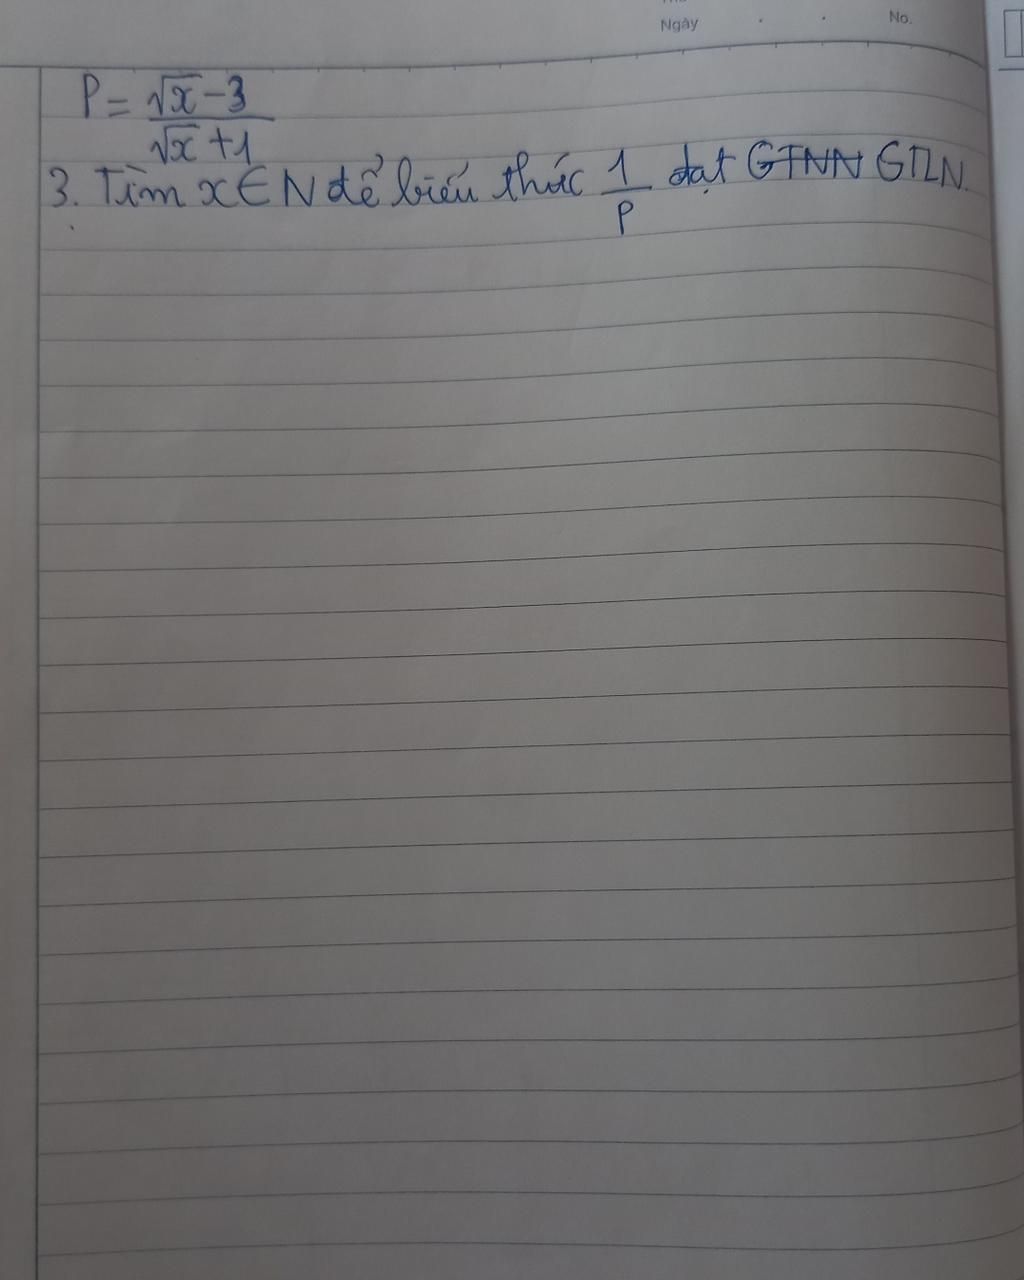 Ngày
No.
P = \frac{\sqrt{x} - 3}{\sqrt{x} + 1}
3. Tìm x ∈ N để biểu thức \frac{1}{P} đạt ~~GTNN~~ GTLN.